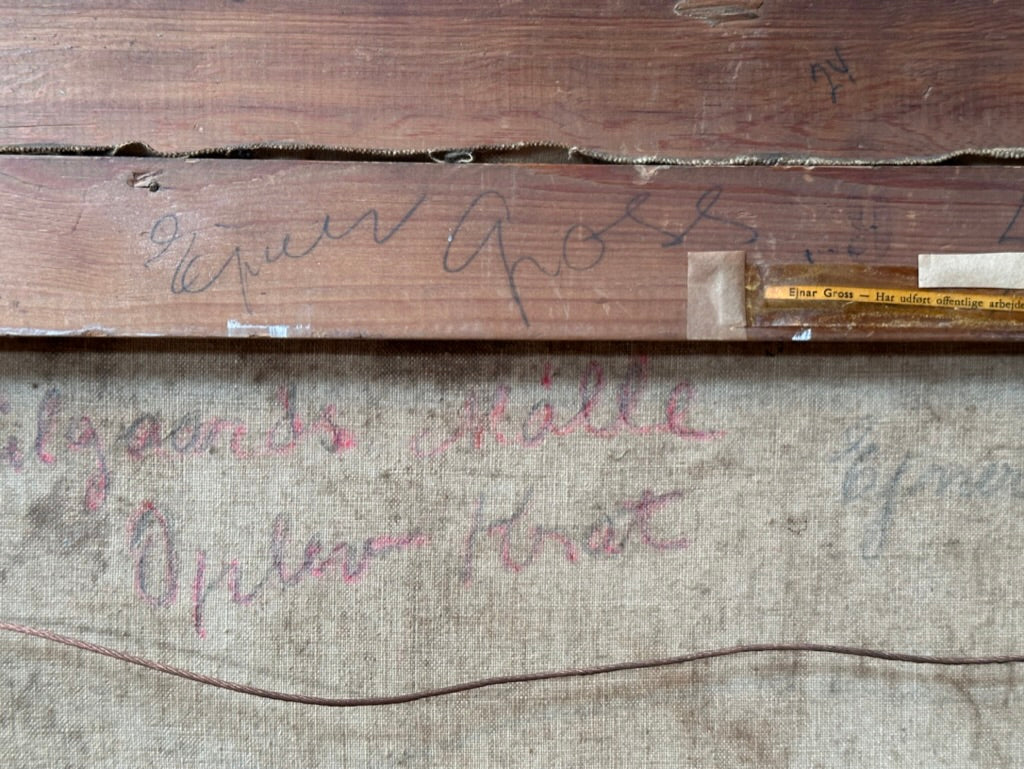 24
Ejner Gross
Ejnar Gross — Har udført offentlige arbejde
ilgaards Mølle
Ejner
Krat